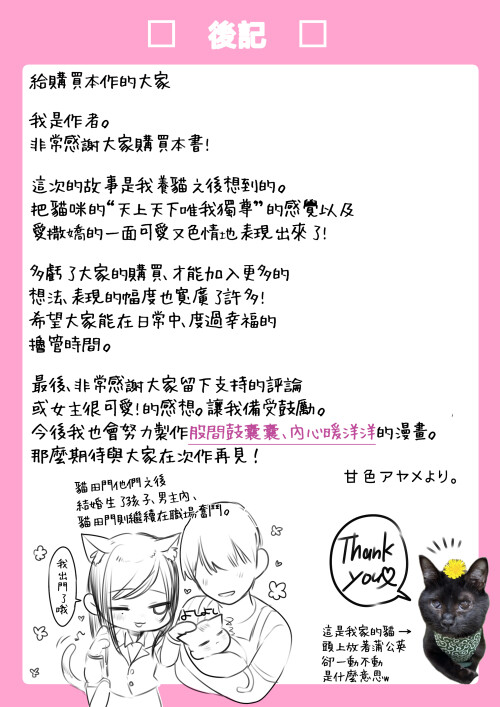 後記
給購買本作的大家
我是作者。
非常感謝大家購買本書!
這次的故事是我養貓之後想到的。
把貓咪的“天上天下唯我獨尊”的感覺以及
愛撒嬌的一面可愛又色情地表現出來了!
多虧了大家的購買、才能加入更多的
想法、表現的幅度也寬廣了許多!
希望大家能在日常中、度過幸福的
擼管時間。
最後、非常感謝大家留下支持的評論
或女主很可愛!的感想。讓我備受鼓勵。
今後我也會努力製作股間鼓囊囊、內心暖洋洋的漫畫。
那麼期待與大家在次作再見!
甘色アヤメより。
貓田門他們之後
結婚生了孩子、男主內、
貓田門則繼續在職場奮鬥。
我出門了哦
よしよし
Thank
you♡
這是我家的貓→
頭上放著蒲公英
卻一動不動
是什麼意思w